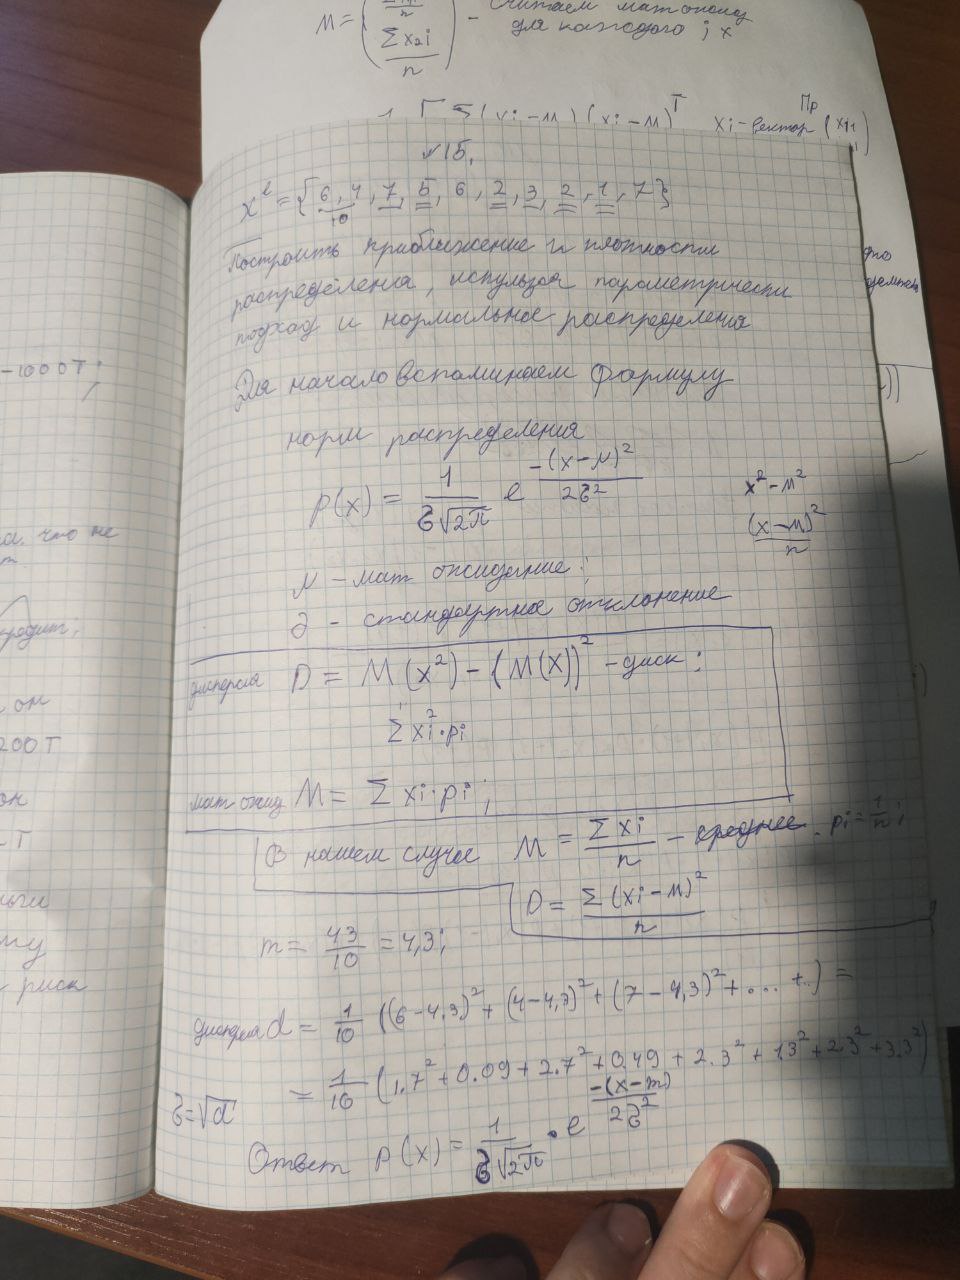 M = ( / n
Σx2i / n ) - считаем мат ожид
для каждого i x
1 Σ (xi - м) (xi - м)^T xi - вектор (x1i
Пр
№15.
X^l = {6, 4, 7, 5, 6, 2, 3, 2, 1, 7}
10
Построить приближение и плотности
распределения, используя параметрически
подход и нормальное распределения
Для начало вспоминаем формулу
норм распределения
p(x) = 1 / σ√2π e^ -(x-м)^2 / 2σ^2
x^2 - м^2
(x-м)^2 / n
м - мат ожидание;
∂ - стандартное отклонение
дисперсия D = M(x^2) - (M(X))^2 - диск:
Σ xi^2·pi
мат ожид M = Σ xi·pi;
В нашем случае M = Σxi / n - среднее. pi = 1/n;
D = Σ(xi-м)^2 / n
m = 43/10 = 4,3;
дисперсия d = 1/10 ((6-4.3)^2 + (4-4,3)^2 + (7-4,3)^2 + ... + ..) =
= 1/10 (1.7^2 + 0.09 + 2.7^2 + 0.49 + 2.3^2 + 1.3^2 + 2.3^2 + 3.3^2)
σ = √d
Ответ p(x) = 1 / σ√2π · e^ -(x-m) / 2σ^2
-1000Т;
что не
кредит;
он
200Т
он
-Т
риск